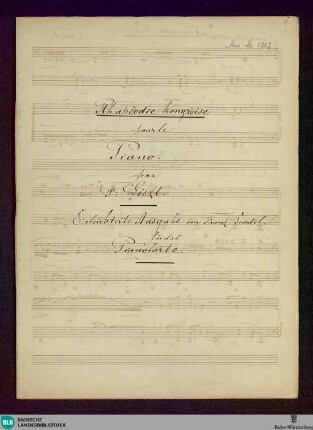 Mus. Hs. 1263
Rhapsodie hongroise
pour le
Piano.
par
F. Liszt.
Erleichterte Ausgabe von Franz Bendel.
für das
Pianoforte.
BLB
BADISCHE
LANDESBIBLIOTHEK
Baden-Württemberg